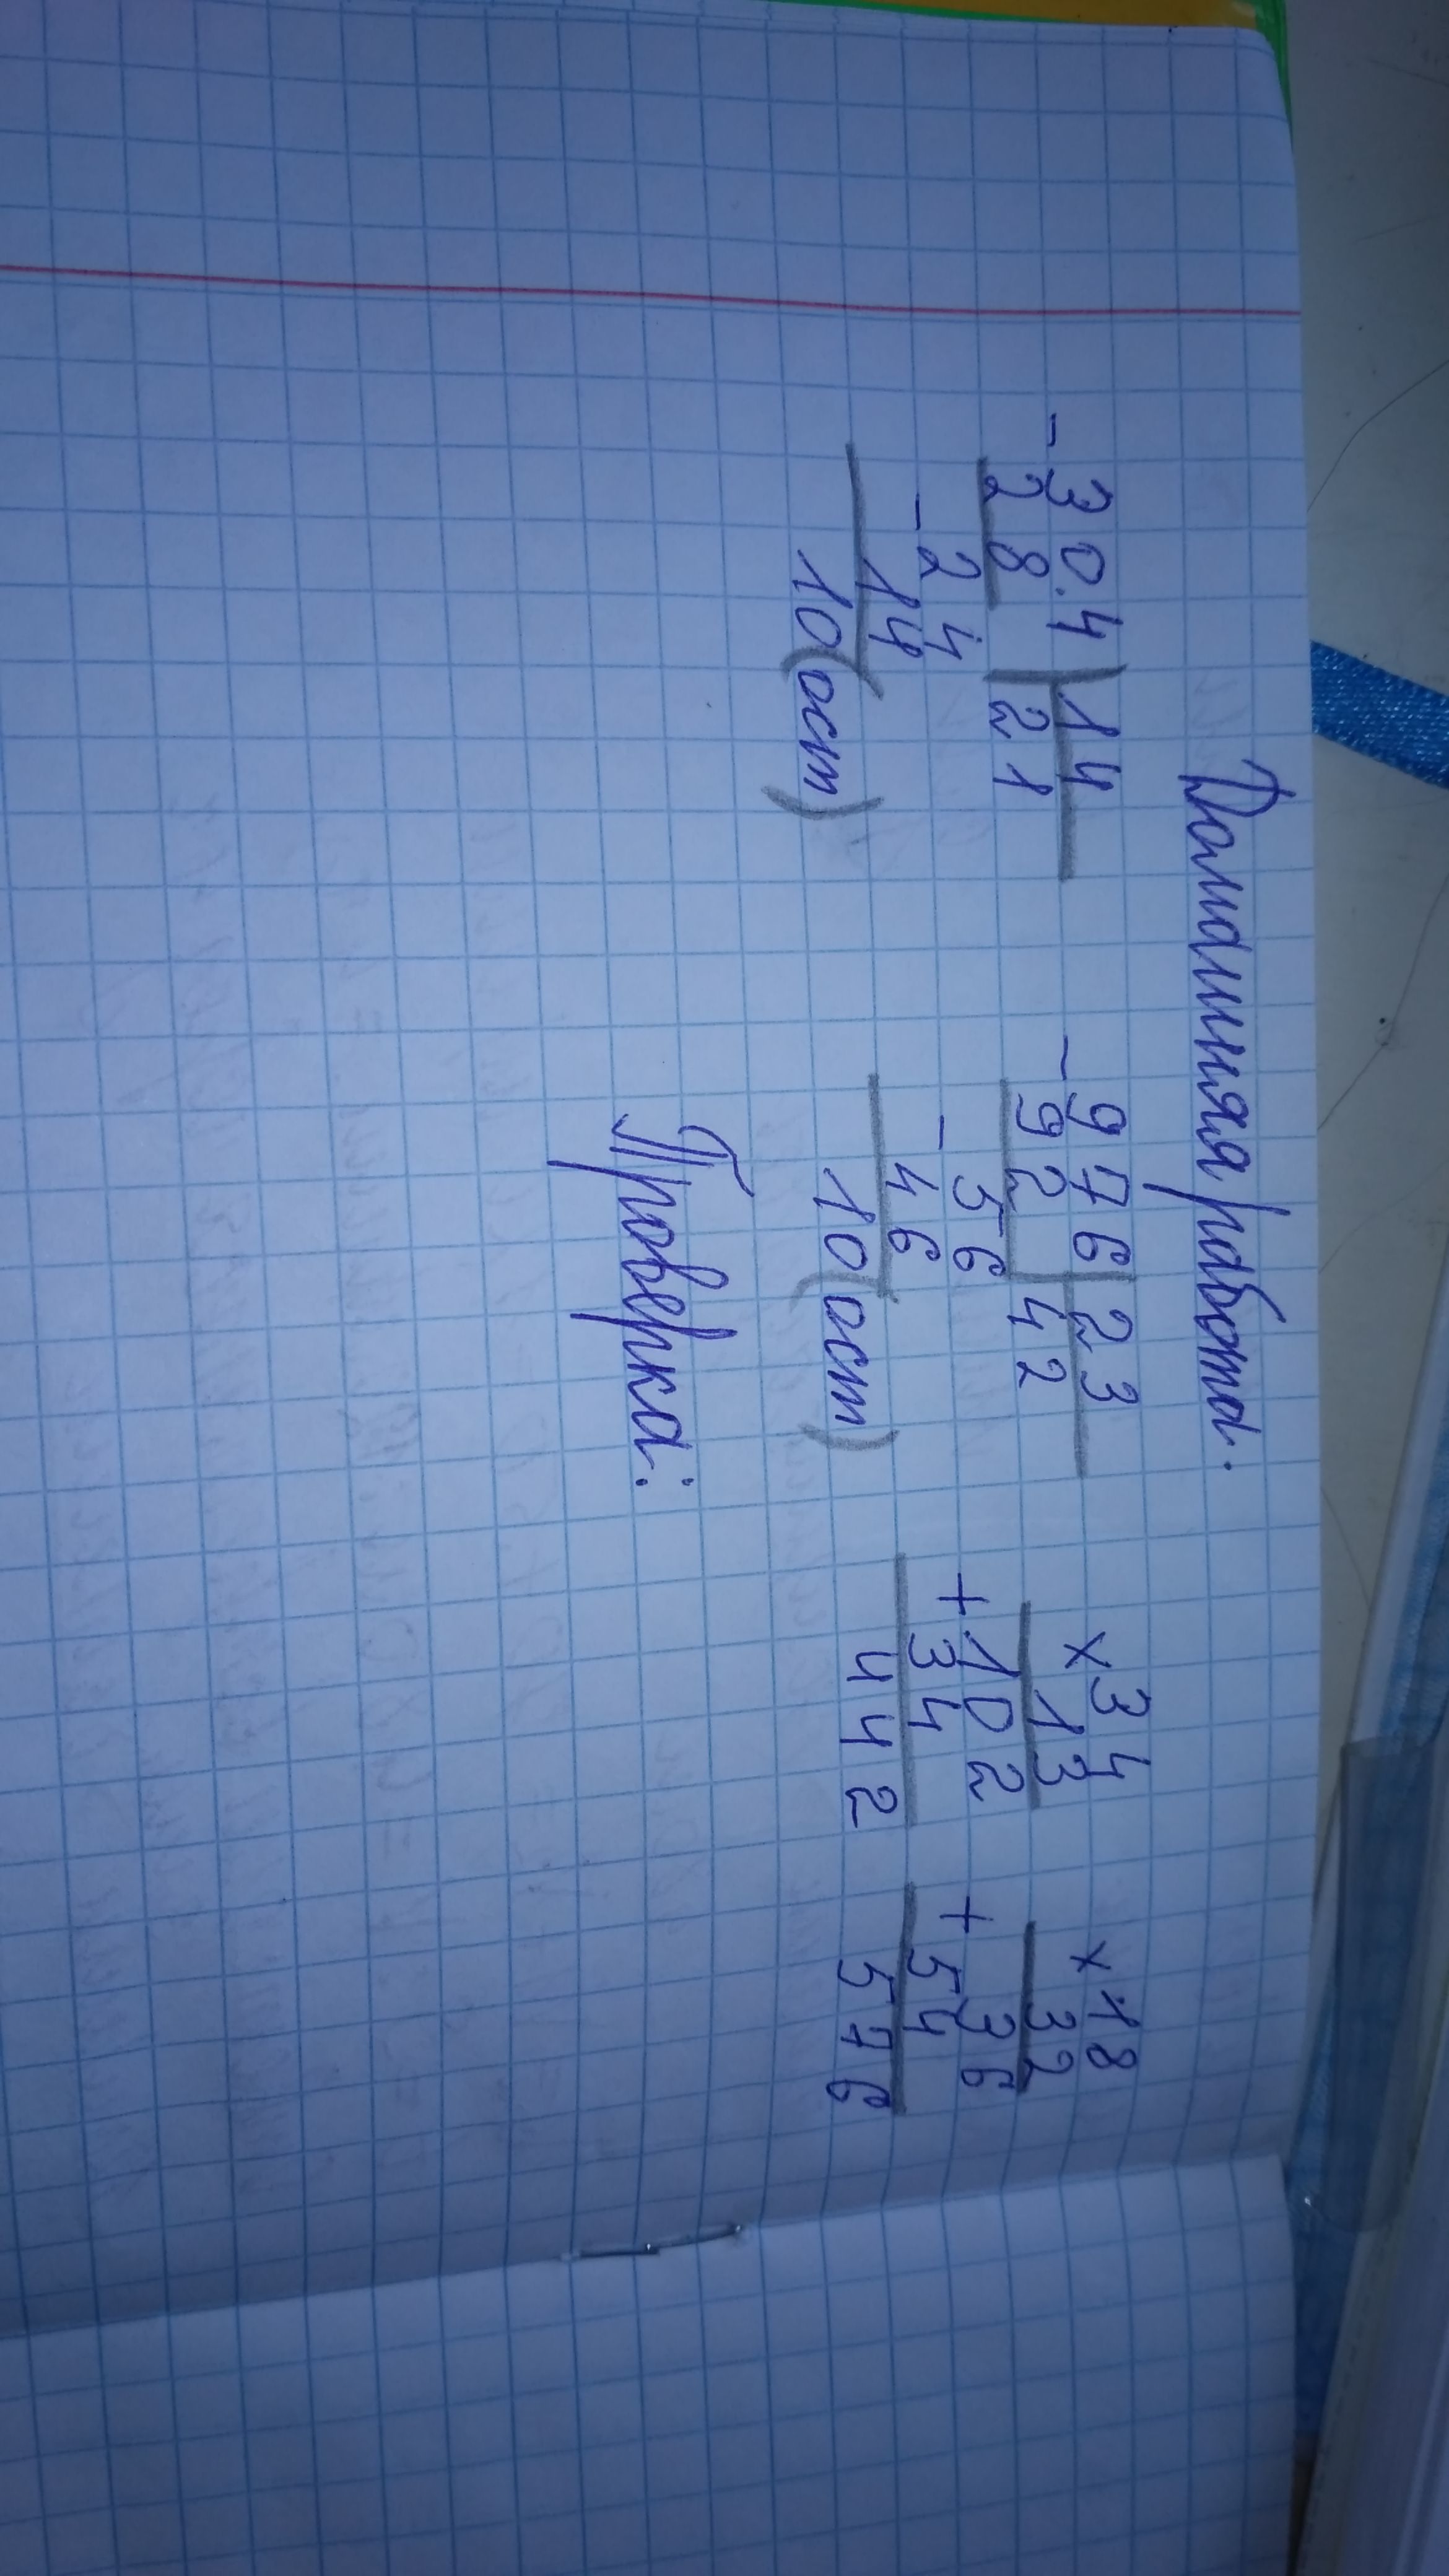 Домашняя работа.
- 30.4 | 14 - 976 | 23 × 34 × 18
28 | 21 92 | 42 13 32
- 24 - 56 + 102 + 36
14 46 34 54
10 (ост) 10 (ост) 442 576
Проверка: